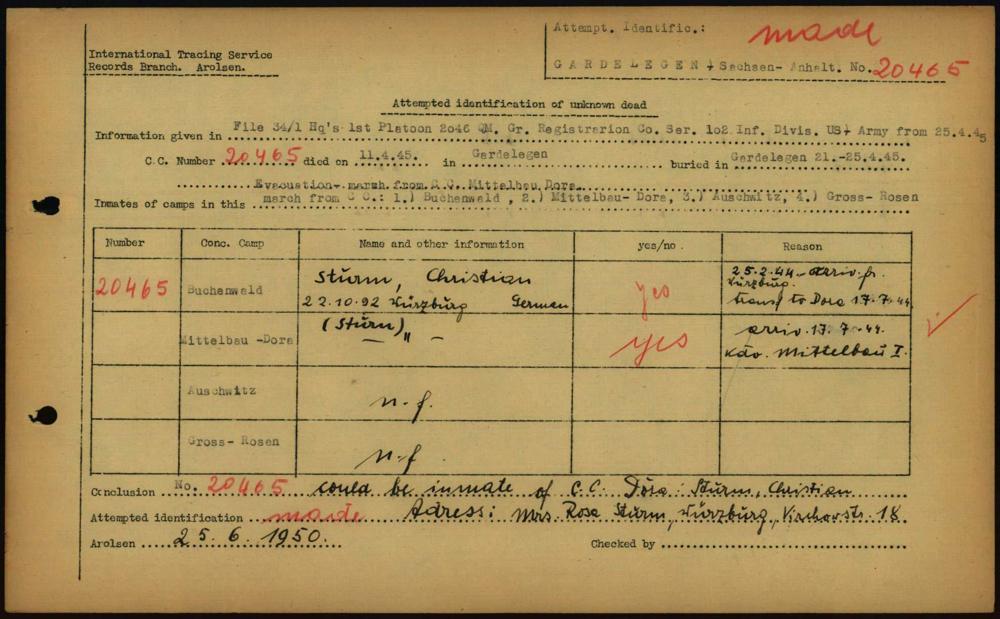 Attempt. Identific.: made
International Tracing Service
Records Branch. Arolsen.
GARDELEGEN, Sachsen- Anhalt. No. 20465
Attempted identification of unknown dead
Information given in File 34/1 Hq's 1st Platoon 2o46 QM. Gr. Registrarion Co. Ser. 1o2 Inf. Divis. US, Army from 25.4.45
C.C. Number 20465 died on 11.4.45. in Gardelegen buried in Gardelegen 21.-25.4.45.
Evacuation- marsh from C C. Mittelbau Dora
Inmates of camps in this march from C C.: 1.) Buchenwald , 2.) Mittelbau- Dora, 3.) Auschwitz, 4.) Gross- Rosen
Number Conc. Camp Name and other information yes/no . Reason
20465 Buchenwald Sturm, Christian yes 25.2.44 - arriv. fr.
22.10.92 Würzburg German Würzburg.
transf to Dora 17.7.44.
Mittelbau -Dora (Sturn) — " — yes arriv. 17. 7. 44.
Kdo. Mittelbau I.
Auschwitz n. f.
Gross- Rosen n. f.
Conclusion No. 20465 could be inmate of C.C. Dora: Sturm, Christian
Attempted identification made Adress: Mrs. Rosa Sturm, Würzburg, Virchowstr. 18
Arolsen 25. 6. 1950. Checked by